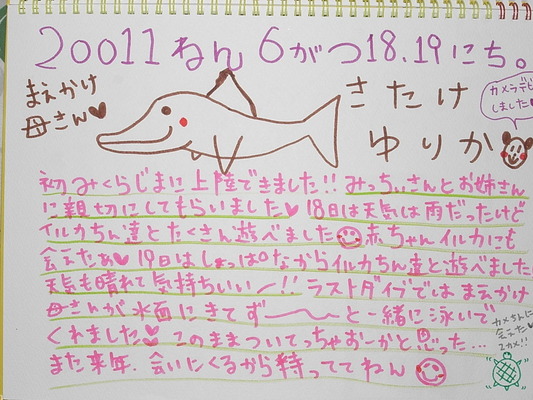 20011ねん 6がつ18.19にち。
まえかけ
母さん♥
さたけ
ゆりか
カメラデビ
しました♡
初みくらじまに上陸できました!! みっちぃさんとお姉さん
に親切にしてもらいました♥ 18日は天気は雨だったけど
イルカちん達とたくさん遊べました😊赤ちゃんイルカにも
会えたぁ♥ 19日はしょっぱなからイルカちん達と遊べました
天気も晴れて気持ちいい〜!! ラストダイブでは まえかけ
母さんが水面にきてず〜〜〜っと一緒に泳いで
くれました♥ このままついてっちゃおーかと思った…
また来年、会いにくるから待っててねん ☺
カメちんに
会えた♥
2カメ!!